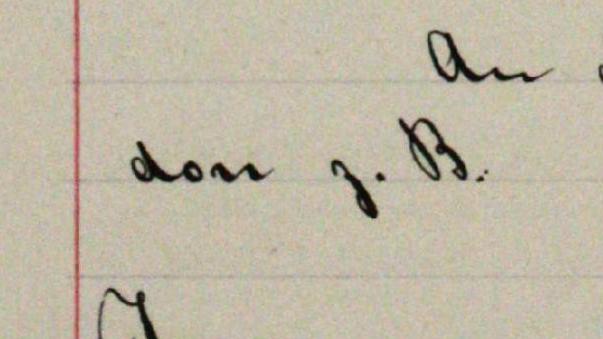 An
don z. B.